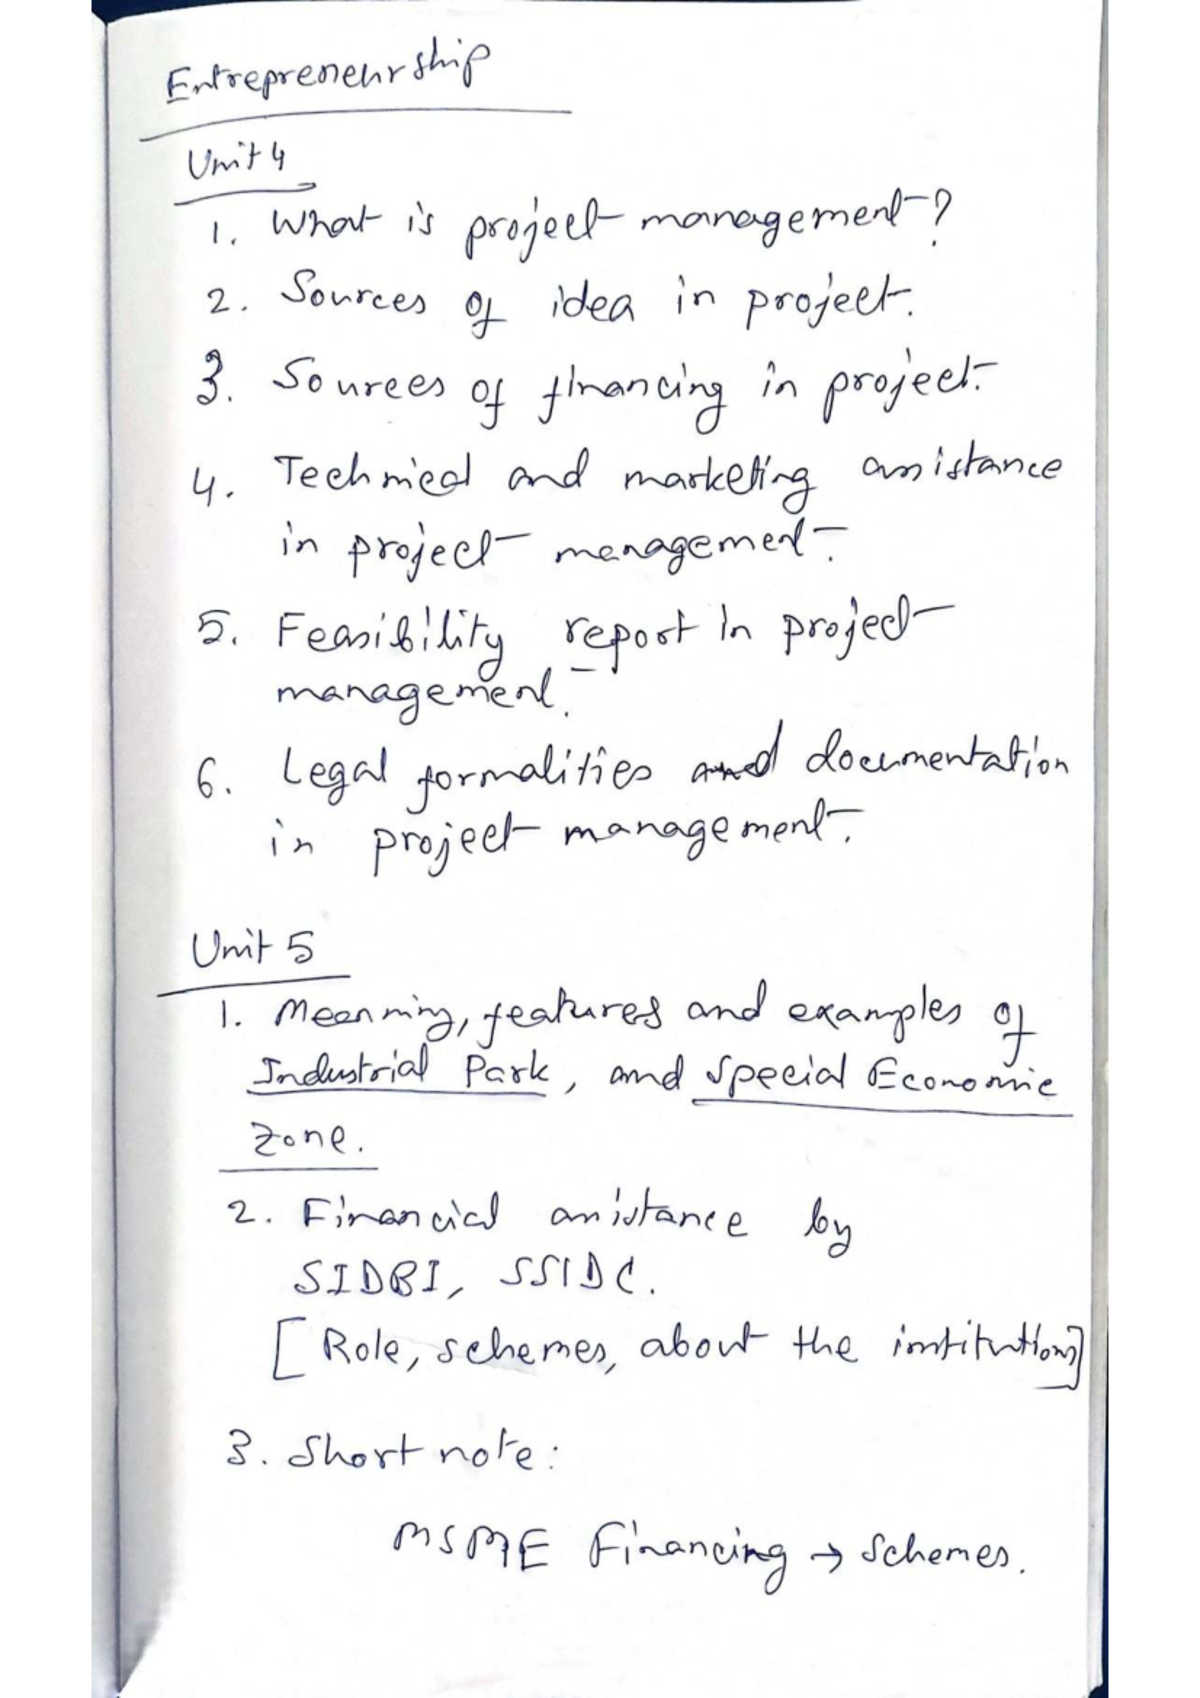 Entrepreneurship
Unit 4
1. What is project management?
2. Sources of idea in project.
3. Sources of financing in project.
4. Technical and marketing assistance
in project management.
5. Feasibility report in project
management.
6. Legal formalities and documentation
in project management.
Unit 5
1. Meaning, features and examples of
Industrial Park, and Special Economic
Zone.
2. Financial assistance by
SIDBI, SSIDC.
[Role, schemes, about the institutions]
3. Short note:
MSME Financing → Schemes.